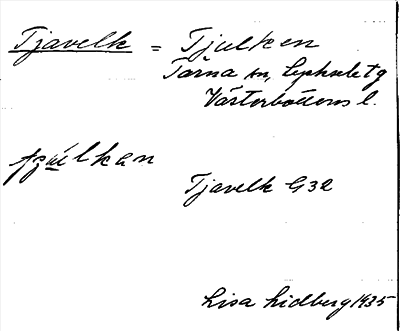 Tjavelk = Tjulken
Tärna sn, Lycksele tg
Västerbottens l.
Tjavelk G32
Lisa Lidberg 1935